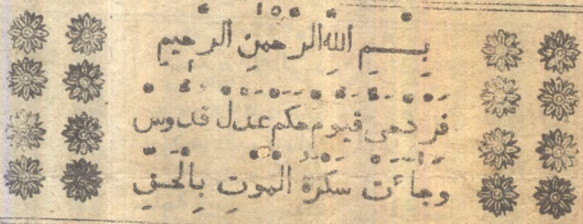 بِسْمِ اللهِ الرَّحْمٰنِ الرَّحِيمِ
فرد حي قيوم حكم عدل قدوس
وَجَاءَتْ سَكْرَةُ الْمَوْتِ بِالْحَقِّ